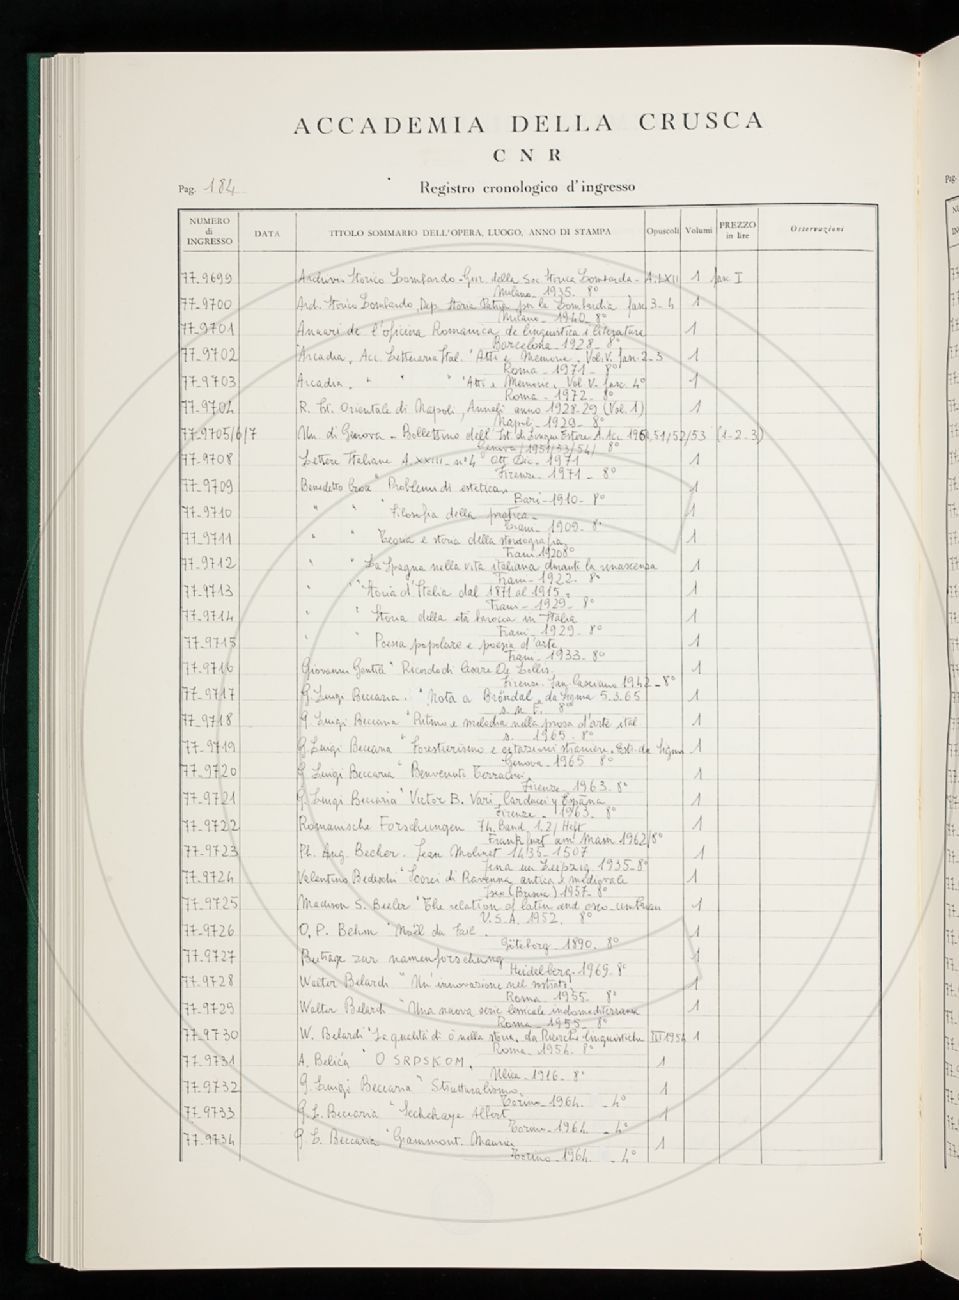 ACCADEMIA DELLA CRUSCA
C N R
Pag. 184
Registro cronologico d'ingresso
NUMERO di INGRESSO DATA TITOLO SOMMARIO DELL'OPERA, LUOGO, ANNO DI STAMPA Opuscoli Volumi PREZZO in lire Osservazioni
77-9699 Archivio Storico Lombardo - Gior. della Soc. Storica Lombarda - A. LXII 1 fasc. I
Milano - 1935. 8°
77-9700 Arch. Storico Lombardo, Dep. Storia Patria per la Lombardia fasc. 3-4 1
Milano - 1940 - 8°
77-9701 Anuari de l'oficina Romanica de linguistica i literatura 1
Barcelona - 1928 - 8°
77-9702 Arcadia, Acc. Letteraria Ital. "Atti e Memorie. Vol. V. fasc. 2-3 1
Roma - 1971 - 8°
77-9703 Arcadia. " " " "Atti e Memorie. Vol V. fasc. 4° 1
Roma - 1972 - 8°
77-9704 R. Ist. Orientale di Napoli, Annali anno 1928-29 (Vol. 1) 1
Napoli - 1929 - 8°
77-9705/6/7 Un. di Genova - Bollettino dell'Ist. di Lingue Estere A. Acc. 51/52/53 (1-2-3)
Genova / 1951/53/54/ 8°
77-9708 Lettere Italiane A. XXIII - n° 4 Ott. Dic. 1971 1
Firenze - 1971 - 8°
77-9709 Benedetto Croce "Problemi di estetica. 1
Bari - 1910 - 8°
77-9710 " " Filosofia della pratica - 1
1909 - 8°
77-9711 " " Teoria e storia della storiografia. 1
1920 8°
77-9712 " " La Spagna nella vita italiana durante la renascenza 1
1922. 8°
77-9713 " " Storia d'Italia dal 1871 al 1915. 1
1929 - 8°
77-9714 " " Storia della età barocca in Italia 1
1929 - 8°
77-9715 " " Poesia popolare e poesia d'arte 1
1933 - 8°
77-9716 Giovanni Gentile "Ricordo di Cesare De Lollis. 1
Firenze. San Casciano 1942 - 8°
77-9717 G. Luigi Beccaria. "Nota a Bröndal da Sigma 5.3.65 1
8°
77-9718 G. Luigi Beccaria "Ritmo e melodia nella prosa d'arte ital 1
s. 1965. 8°
77-9719 G. Luigi Beccaria "Forestierismo e estrazioni straniere. Estr. da Sigma 1
Genova - 1965 8°
77-9720 G. Luigi Beccaria "Benvenuto Terracini. 1
Firenze - 1963. 8°
77-9721 G. Luigi Beccaria "Victor B. Vari, Carducci y España 1
Firenze - 1963. 8°
77-9722 Romanische Forschungen 74. Band. 1.2/ Heft 1
Frankfurt am Main 1962/8°
77-9723 Ph. Aug. Becker. Jean Molinet 1435-1507 1
Jena un Leipzig. 1935 - 8°
77-9724 Valentino Bedeschi "Scorci di Ravenna antica e medioevale 1
(Brescia) 1957 - 8°
77-9725 Madison S. Beeler "The relation of latin and osco-umbrian 1
U.S.A. 1952. 8°
77-9726 O. P. Behm "Noël du Fail. 1
Göteborg - 1890. 8°
77-9727 Beitrage zur namenforschung 1
Heidelberg - 1969 - 8°
77-9728 Walter Belardi "Un'innovazione nel 1
Roma - 1955. 8°
77-9729 Walter Belardi "Una nuova serie lessicale indomediterranea 1
Roma - 1955 - 8°
77-9730 W. Belardi "La qualità di o nella da Ricerche linguistiche III 1954 1
Roma - 1954. 8°
77-9731 A. Belića "O SRPSKOM. 1
1916 - 8°
77-9732 G. Luigi Beccaria "Strutturalismo. 1
Torino - 1964. - 4°
77-9733 G. L. Beccaria "Sechehaye Albert 1
Torino - 1964 - 4°
77-9734 G. L. Beccaria "Grammont. Maurice 1
Torino - 1964 - 4°